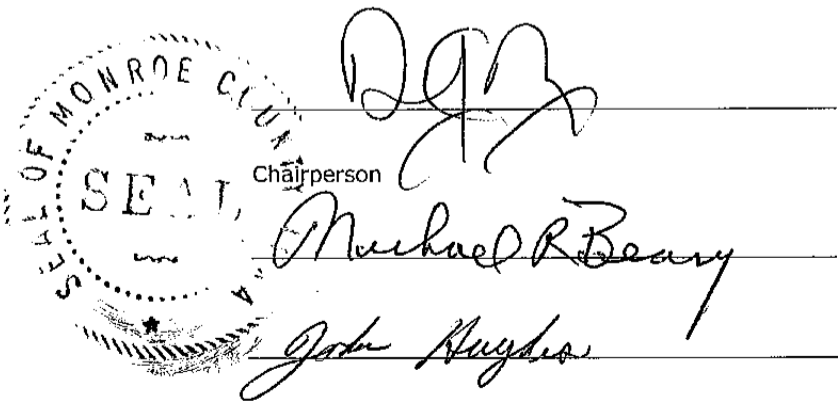 SEAL OF MONROE COUNTY
SEAL
Chairperson
Michael R Beary
John Hughes